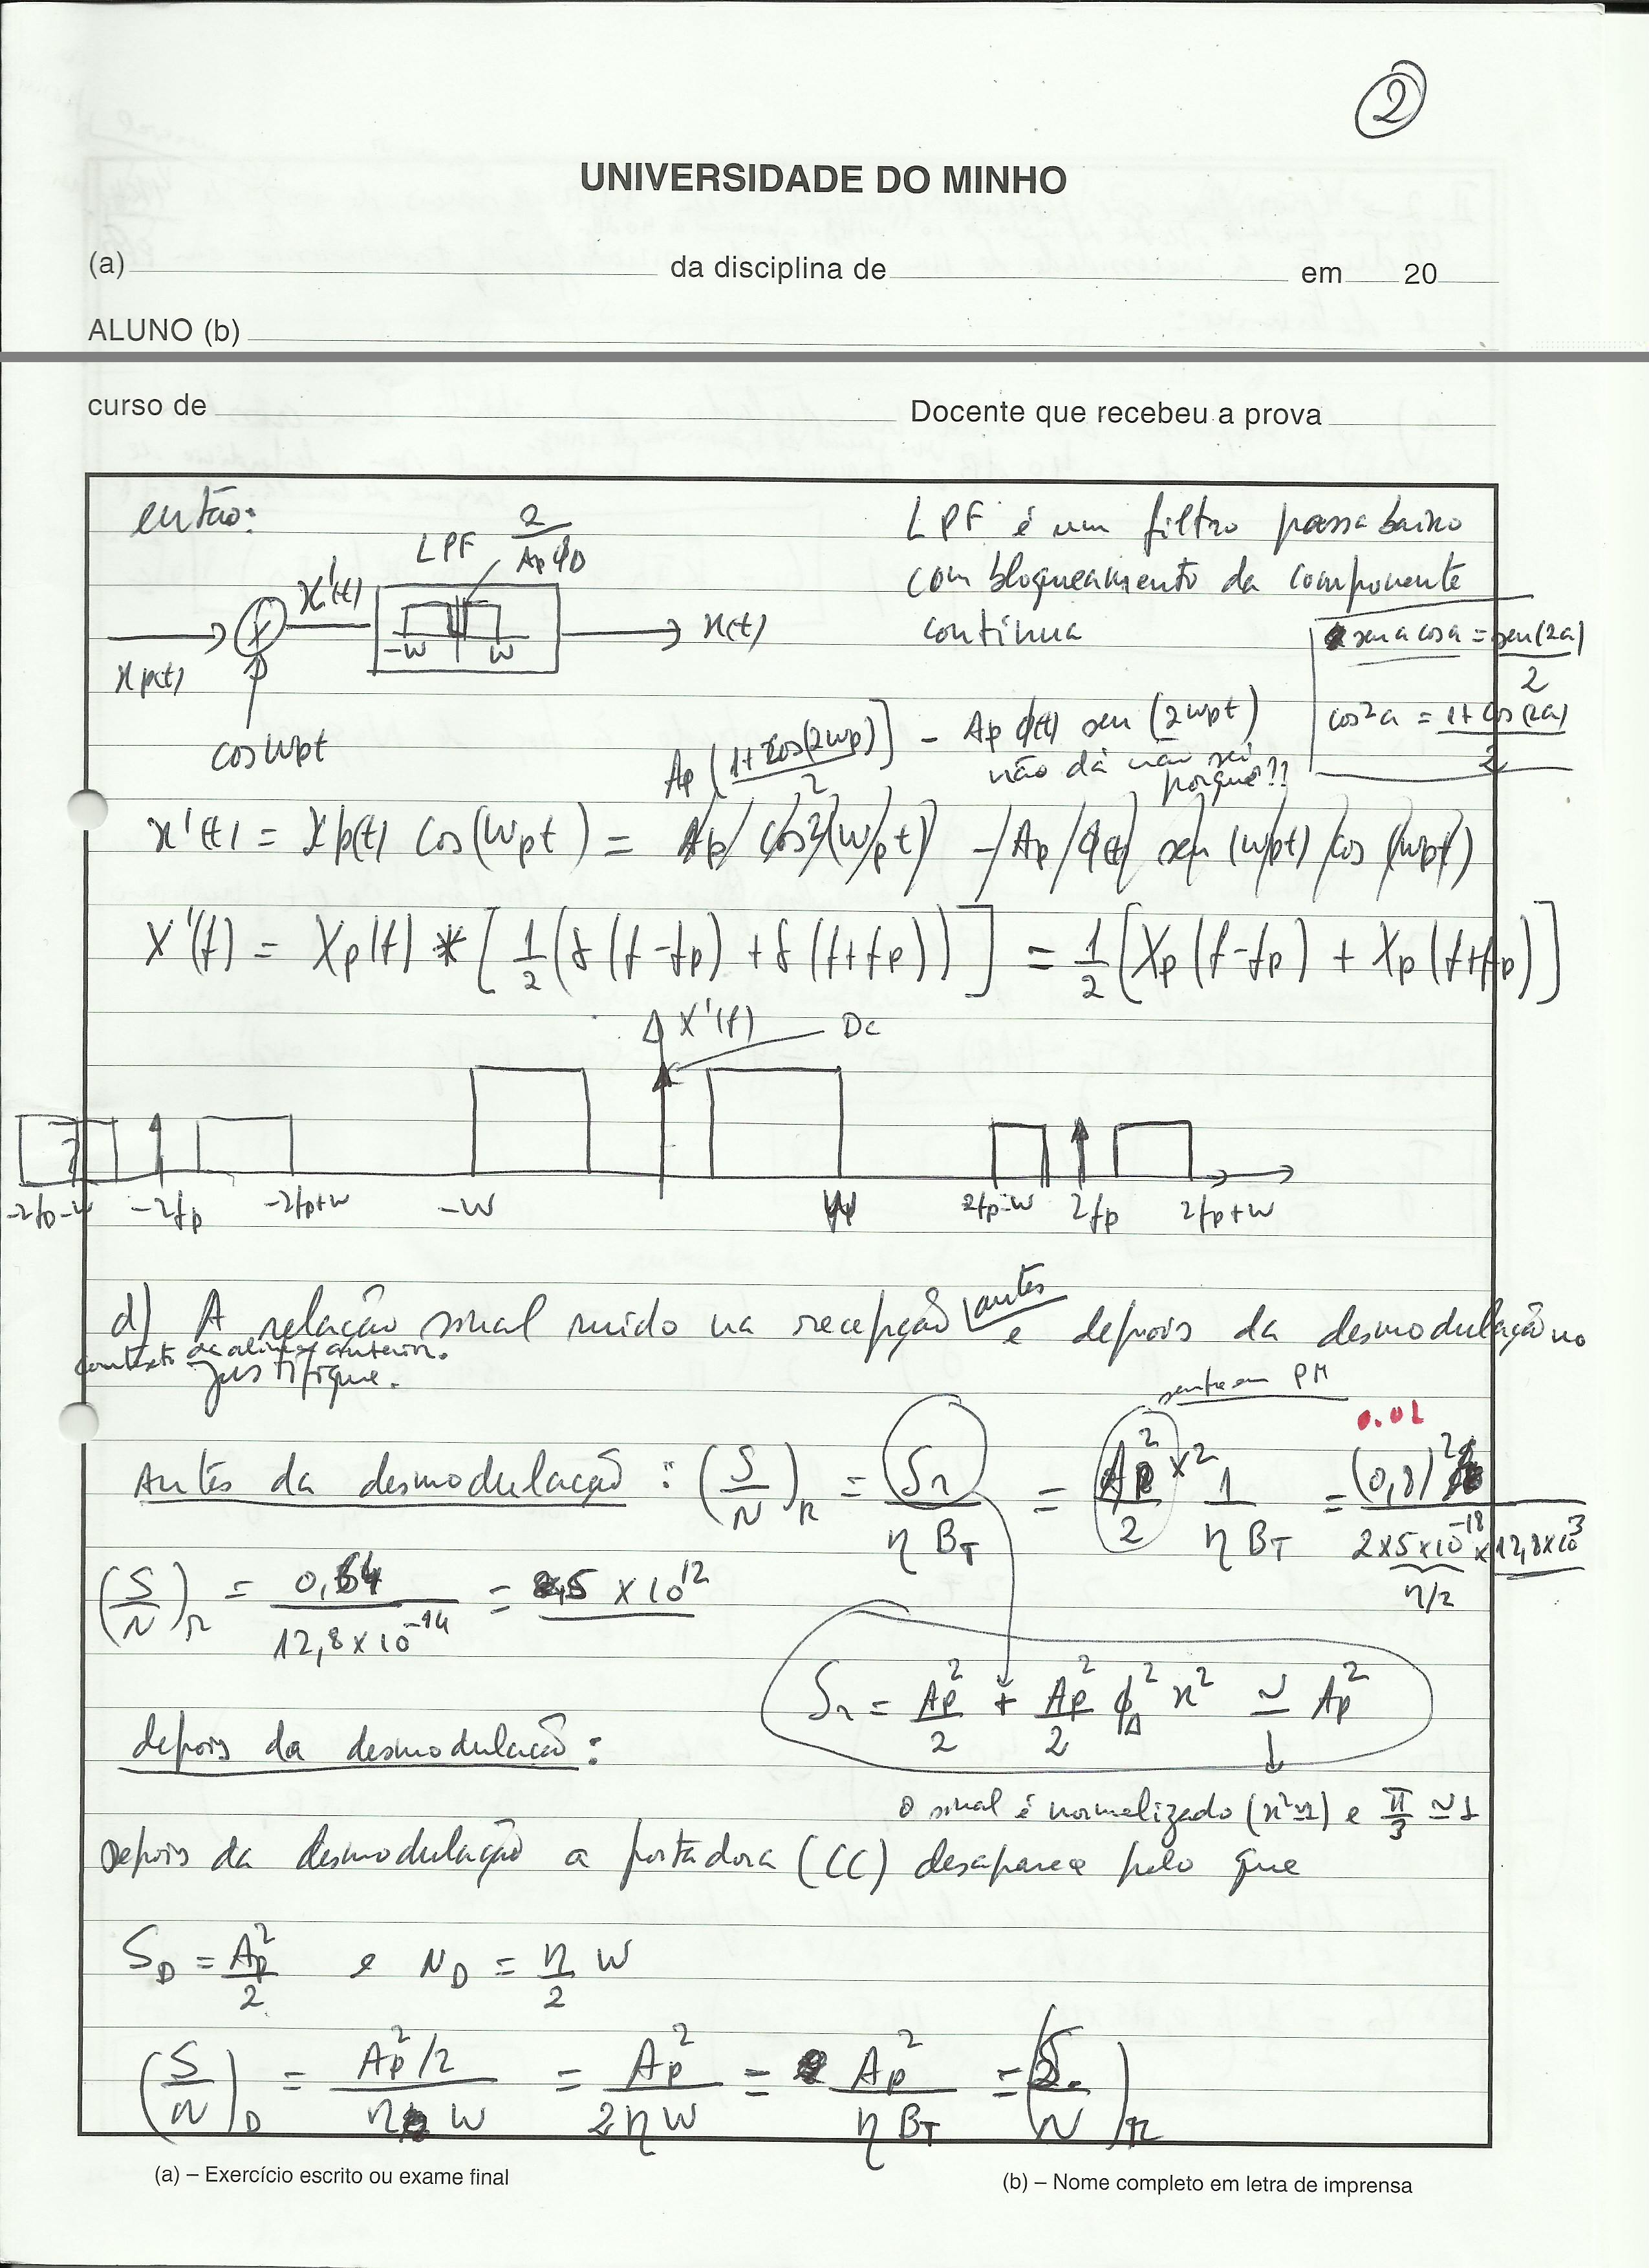 2
UNIVERSIDADE DO MINHO
(a) da disciplina de em 20
ALUNO (b)
curso de Docente que recebeu a prova
então:
LPF 2/(Ap ϕD)
x'(t)
-W W
x(t)
xp(t)
cos wpt
LPF é um filtro passa baixo
com bloqueamento da componente
contínua
sen a cos a = sen(2a)/2
cos²a = (1+cos(2a))/2
Ap [(1+cos(2wp))/2] - Ap ϕ(t) sen (2wpt)
não dá não sei
porquê??
x'(t) = xp(t) cos(wpt) = Ap cos²(wpt) - Ap ϕ(t) sen (wpt) cos (wpt)
X'(f) = Xp(f) * [1/2 (δ(f-fp) + δ(f+fp))] = 1/2 [Xp(f-fp) + Xp(f+fp)]
X'(f) DC
-2fp-W -2fp -2fp+W -W W 2fp-W 2fp 2fp+W
d) A relação sinal ruído na recepção antes e depois da desmodulação no
contexto da alínea anterior.
Justifique.
sempre em PM
0.01
Antes da desmodulação: (S/N)R = SR/(η BT) = Ap²/2 x2 1/(η BT) = (0,8)²/(2x5x10⁻¹⁸ x 12,8x10³)
η/2
(S/N)R = 0,64/(12,8x10⁻¹⁴) = 5 x 10¹²
SR = Ap²/2 + Ap²/2 ϕΔ² x² ≃ Ap²
depois da desmodulação:
o sinal é normalizado (x²≃1) e π/3 ≃ 1
Depois da desmodulação a portadora (CC) desaparece pelo que
SD = Ap²/2 e ND = η/2 W
(S/N)D = (Ap²/2)/(η W) = Ap²/(2ηW) = Ap²/(η BT) = (S/N)R
(a) – Exercício escrito ou exame final
(b) – Nome completo em letra de imprensa